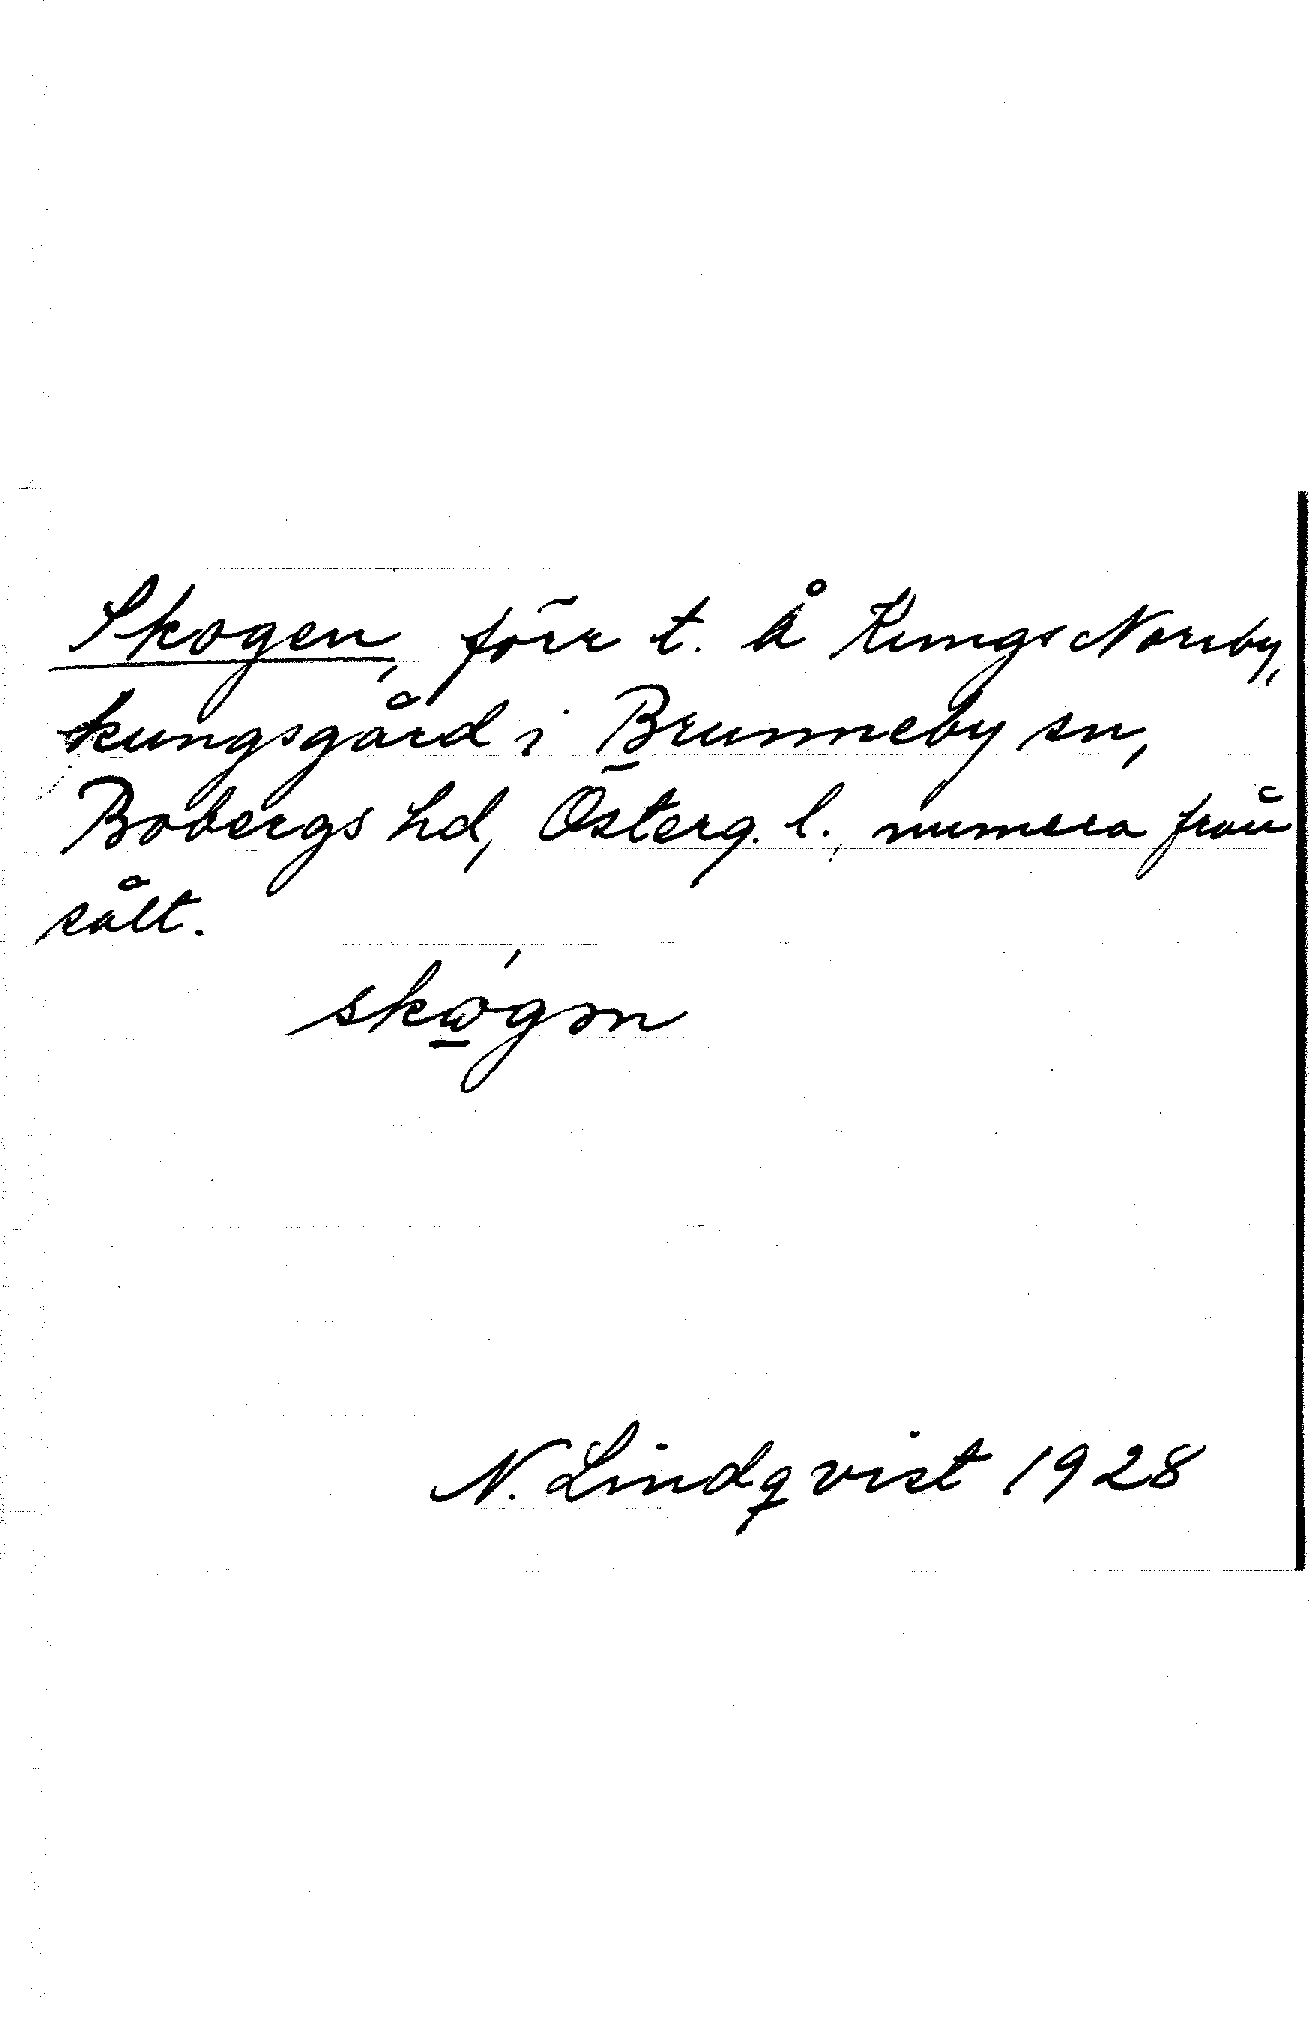 Skogen, förr t. å Kungs Norrby,
kungsgård i Brunneby sn,
Bobergs hd, Österg. l., numera från
sålt.
skώ̲gən
N. Lindqvist 1928